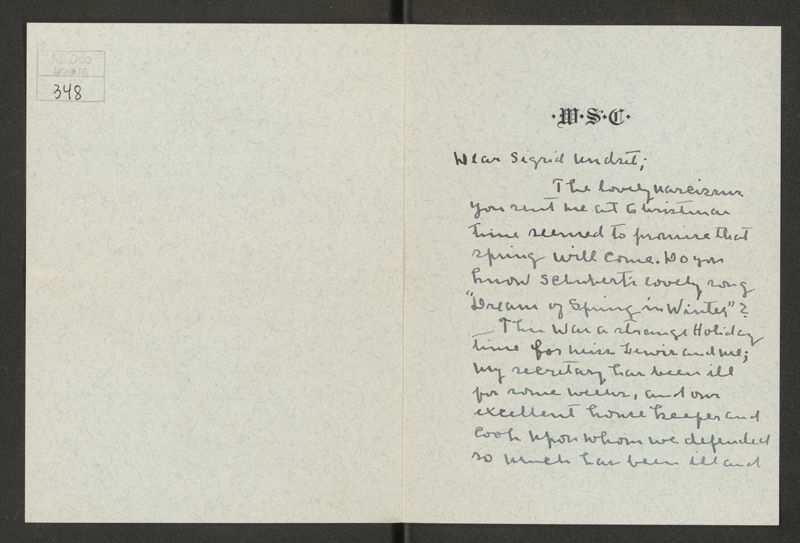 348
·W·S·C·
Dear Sigrid Undset;
The lovely narcissus
you sent me at Christmas
time seemed to promise that
spring will come. Do you
know Schubert's lovely song
"Dream of Spring in Winter"?
_ This was a strange Holiday
time for Miss Lewis and me;
my secretary has been ill
for some weeks, and our
excellent house keeper and
cook upon whom we depended
so much has been ill and